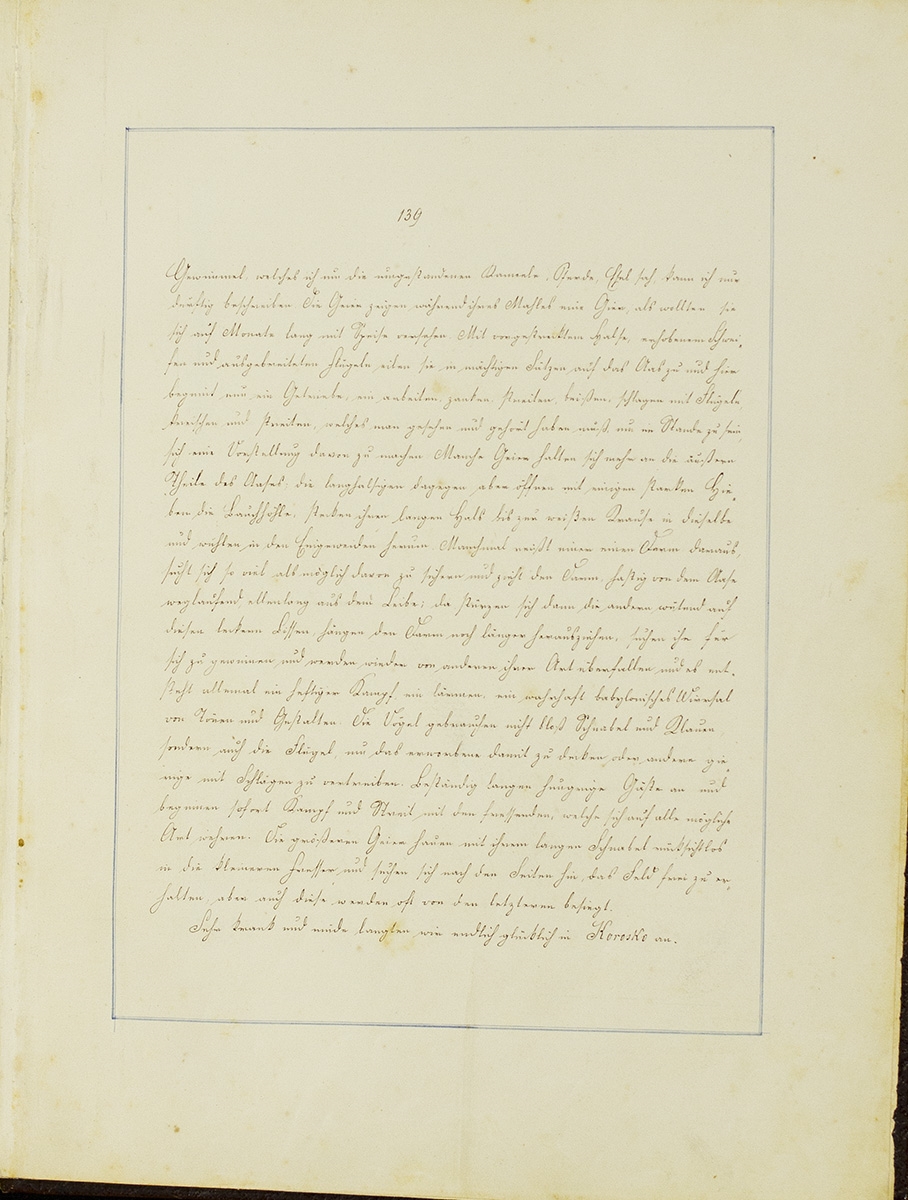 139
Gewimmel, welches ich um die umgestandenen Kameele, Pferde, Esel sah, kann ich nur
dürftig beschreiben. Die Geier zeigen während ihres Mahles eine Gier, als wollten sie
sich auf Monate lang mit Speise versehen. Mit vorgestrecktem Halse, erhobenem Schwei-
fen und ausgebreiteten Flügeln eilen sie in mächtigen Sätzen auf das Aas zu und hier
beginnt nun ein Getriebe, ein arbeiten, zanken, streiten, beißen, schlagen mit Flügeln
kreischen und streiten, welches man gesehen und gehört haben muß, um im Stande zu sein
sich eine Vorstellung davon zu machen. Manche Geier halten sich mehr an die äußern
Theile des Aases; die langhalsigen dagegen aber öffnen mit einigen starken Hie-
ben die Bauchhöhle, stecken ihren langen Hals bis zur weißen Krause in dieselbe
und wühlen in den Eingeweiden herum. Manchmal reißt einer einen Darm daraus,
sucht sich so viel als möglich davon zu sichern und zieht den Darm, hastig von dem Aase
weglaufend ellenlang aus dem Leibe; da stürzen sich dann die andern wütend auf
diesen leckern Bissen, fangen den Darm noch länger herauszuziehen, suchen ihn für
sich zu gewinnen und werden wieder von anderen ihrer Art überfallen und es ent-
steht allemal ein heftiger Kampf, ein lärmen, ein wahrhaft babylonisches Wirrsal
von Tönen und Gestalten. Die Vögel gebrauchen nicht bloß Schnabel und Klauen
sondern auch die Flügel, um das erworbene damit zu decken oder andere gie-
rige mit Schlägen zu vertreiben. Beständig langen hungrige Gäste an und
beginnen sofort Kampf und Streit mit den fressenden, welche sich auf alle mögliche
Art wehren. Die größeren Geier hauen mit ihrem langen Schnabel rücksichtlos
in die kleineren Fresser und suchen sich nach den Seiten hin das Feld frei zu er-
halten, aber auch diese werden oft von den letzteren besiegt.
Sehr krank und müde langten wir endlich glücklich in Korosko an.